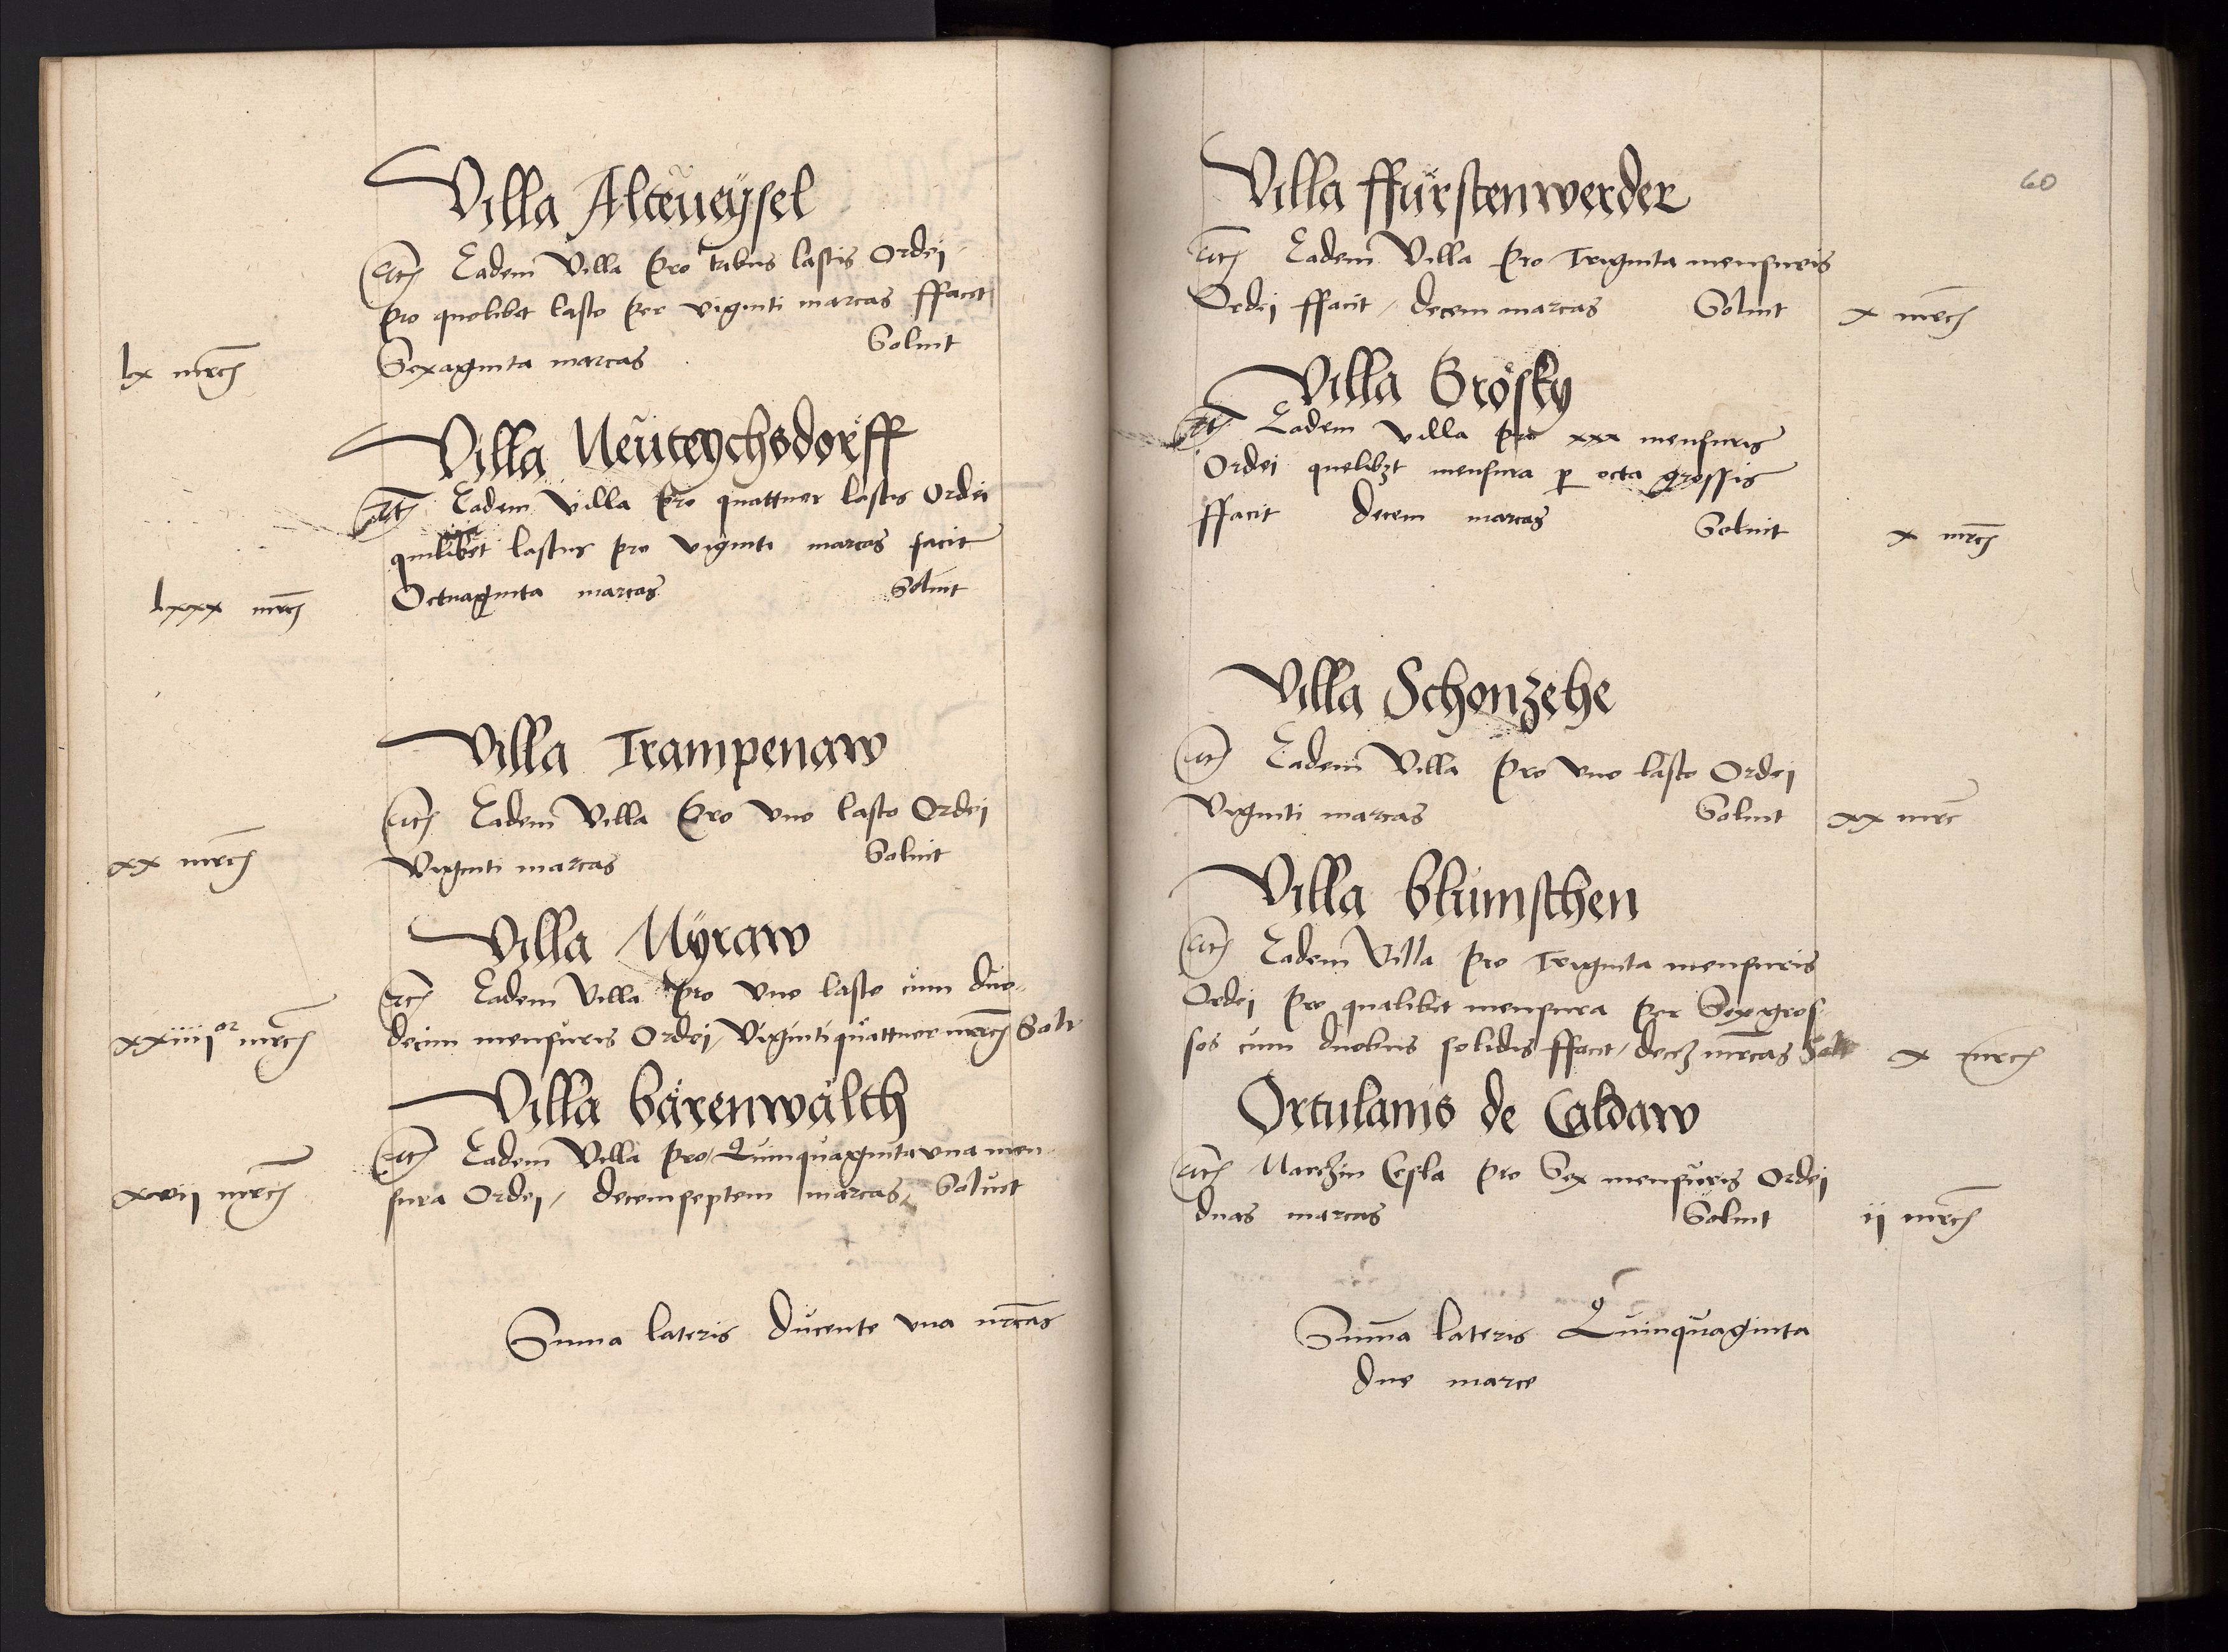 Villa Alteueÿsel
Itē Eadem Villa Pro tribus lastis Ordej
pro quolibet lasto per viginti marcas ffacit
Soluit
lx mrc̄
Sexaginta marcas
Villa Neuteychsdorff
Itē Eadem villa pro quattuer lastis Ordei
quilibet lastus pro viginti marcas facit
lxxx mrc̄
Octuaginta marcas Soluit
Villa Trampenaw
Itē Eadem Villa Pro vno lasto Ordej
xx mrc̄
Viginti marcas Soluit
Villa Myraw
Itē Eadem Villa Pro vno lasto cum duo-
xxiiii or mrc̄
decim mensuris Ordej / Vigintiquattuer mrc̄ Solt
Villa bärenwälth
Itē Eadem Villa pro / Quinquaginta vna men-
xvij mrc̄
sura Ordej / decemseptem marcas Soluit
Suma lateris ducente vna mrcas
60
Villa ffürstenwerder
Itē Eadem Villa Pro Triginta mensuris
Ordej ffacit / decem marcas Soluit x mrc̄
Villa Brösky
Itē Eadem villa pro xxx mensuris
Ordei quelibzt mensura p octa grossis
ffacit decem marcas Soluit x mrc̄
Villa Schonzehe
Itē Eadem Villa Pro vno lasto Ordej
Viginti marcas Soluit xx mrc
Villa blumsthen
Itē Eadem Villa Pro Triginta mensuris
Ordej Pro qualibet mensura Per Sex gros-
sos cum duobus solidis ffacit / decez mrcas Solt x mrc̄
Ortulanis de Caldaw
Itē Marczin Cesla Pro Sex mensuris Ordej
duas marcas Soluit ij mrc̄
Sum̄a lateris Quinquaginta
due marce